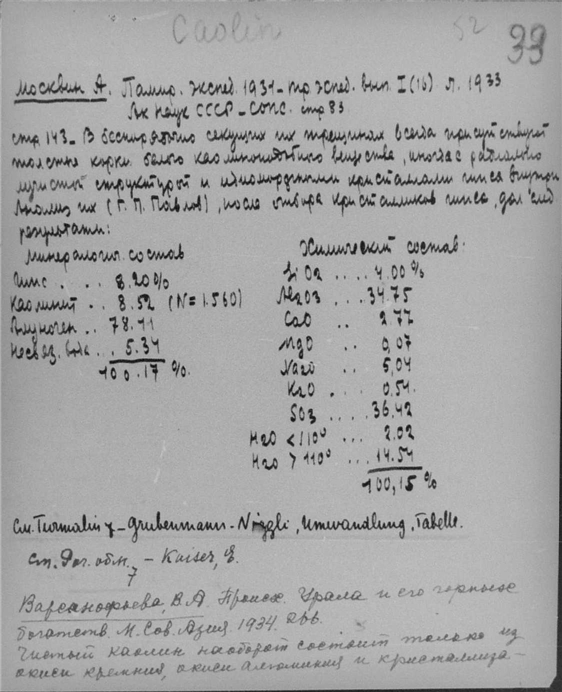 Caolin 52 33
Москвин А. Памир. экспед. 1931 – тр. экспед. вып. I (16) Л. 1933
Ак Наук СССР – Сопс. стр 83
стр 143 – В беспорядочно секущих их трещинах всегда присутствуют
толстые корки белого каолиноподобного вещества, иногда с радиально
лучистой структурой и идиоморфными кристаллами гипса внутри
Анализ их (Г. П. Павлов), после отбора кристалликов гипса, дал след
результаты:
Минералогич. состав
Гипс . . . 8.20%
Каолинит . . 8.52 (N = 1.560)
Алуноген . . 78.11
Несвяз. вода . . 5.34
100.17 %.
Химический состав:
SiO2 . . . . 4.00 %
Al2O3 . . . 34.75
CaO . . 2.77
MgO . . 0,07
Na2O . . . 5,04
K2O . . . 0,54.
SO3 . . . . 36.42
H2O < 110° . . . 2.02
H2O > 110° . . . 14.54
100,15 %
См. Turmalin 7 – Grubenmann – Niggli, Umwandlung, Tabelle.
См. Дог. обм. 7 – Kaiser, E.
Варсанофьева, В. А. Происх. Урала и его горных
богатств. М. Сов. Азия. 1934. 266.
Чистый каолин наоборот состоит только из
окиси кремния, окиси алюминия и кристаллиза-